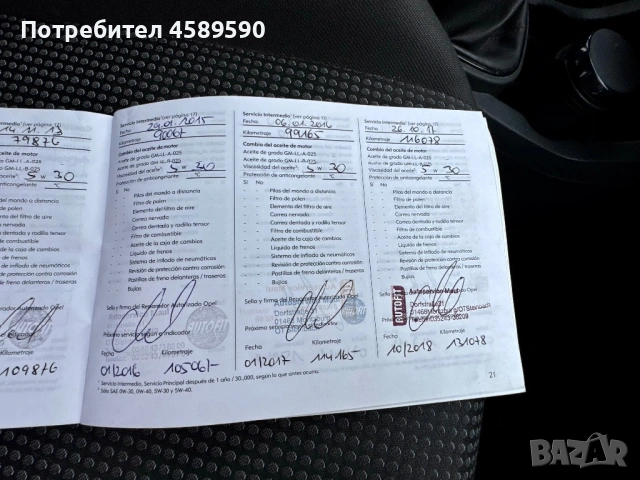 Потребител 4589590
14.11.13
79876
aceite de motor
ado GM-LL-A-025
ado GM-LL-B-025
del aceite² 5 W 30
nticongelante °C
109876
Servicio Intermedio¹ (ver página 17)
Fecha 20.01.2015
Kilometraje 90061
Cambio del aceite de motor
Aceite de grado GM-LL-A-025
Aceite de grado GM-LL-B-025
Viscosidad del aceite² 5 W 30
Protección de anticongelante °C
Sí No
Pilas del mando a distancia
Filtro de polen
Elemento del filtro de aire
Correa nervada
Correa dentada y rodillo tensor
Filtro de combustible
Aceite de la caja de cambios
Líquido de frenos
Sistema de inflado de neumáticos
Revisión de protección contra corrosión
Pastillas de freno delanteras / traseras
Bujías
Sello y firma del Reparador Autorizado Opel
Próximo servicio según el indicador:
Fecha Kilometraje
01/2016 105061-
Servicio Intermedio¹ (ver página 17)
Fecha 06.01.2016
Kilometraje 99165
Cambio del aceite de motor
Aceite de grado GM-LL-A-025
Aceite de grado GM-LL-B-025
Viscosidad del aceite² 5 W 30
Protección de anticongelante °C
Sí No
Pilas del mando a distancia
Filtro de polen
Elemento del filtro de aire
Correa nervada
Correa dentada y rodillo tensor
Filtro de combustible
Aceite de la caja de cambios
Líquido de frenos
Sistema de inflado de neumáticos
Revisión de protección contra corrosión
Pastillas de freno delanteras / traseras
Bujías
Sello y firma del Reparador Autorizado Opel
Fecha Kilometraje
01/2017 114165
Servicio Intermedio¹ (ver página 17)
Fecha 26.10.17
Kilometraje 116078
Cambio del aceite de motor
Aceite de grado GM-LL-A-025
Aceite de grado GM-LL-B-025
Viscosidad del aceite² 5 W 30
Protección de anticongelante °C
Sí No
Pilas del mando a distancia
Filtro de polen
Elemento del filtro de aire
Correa nervada
Correa dentada y rodillo tensor
Filtro de combustible
Aceite de la caja de cambios
Líquido de frenos
Sistema de inflado de neumáticos
Revisión de protección contra corrosión
Pastillas de freno delanteras / traseras
Bujías
AUTOFIT
Fecha Kilometraje
10/2018 131078
¹ Servicio Intermedio, Servicio Principal después de 1 año / 30.000, según lo que antes ocurra.
² Sólo SAE 0W-30, 0W-40, 5W-30 y 5W-40.
21
BAZAR.bg